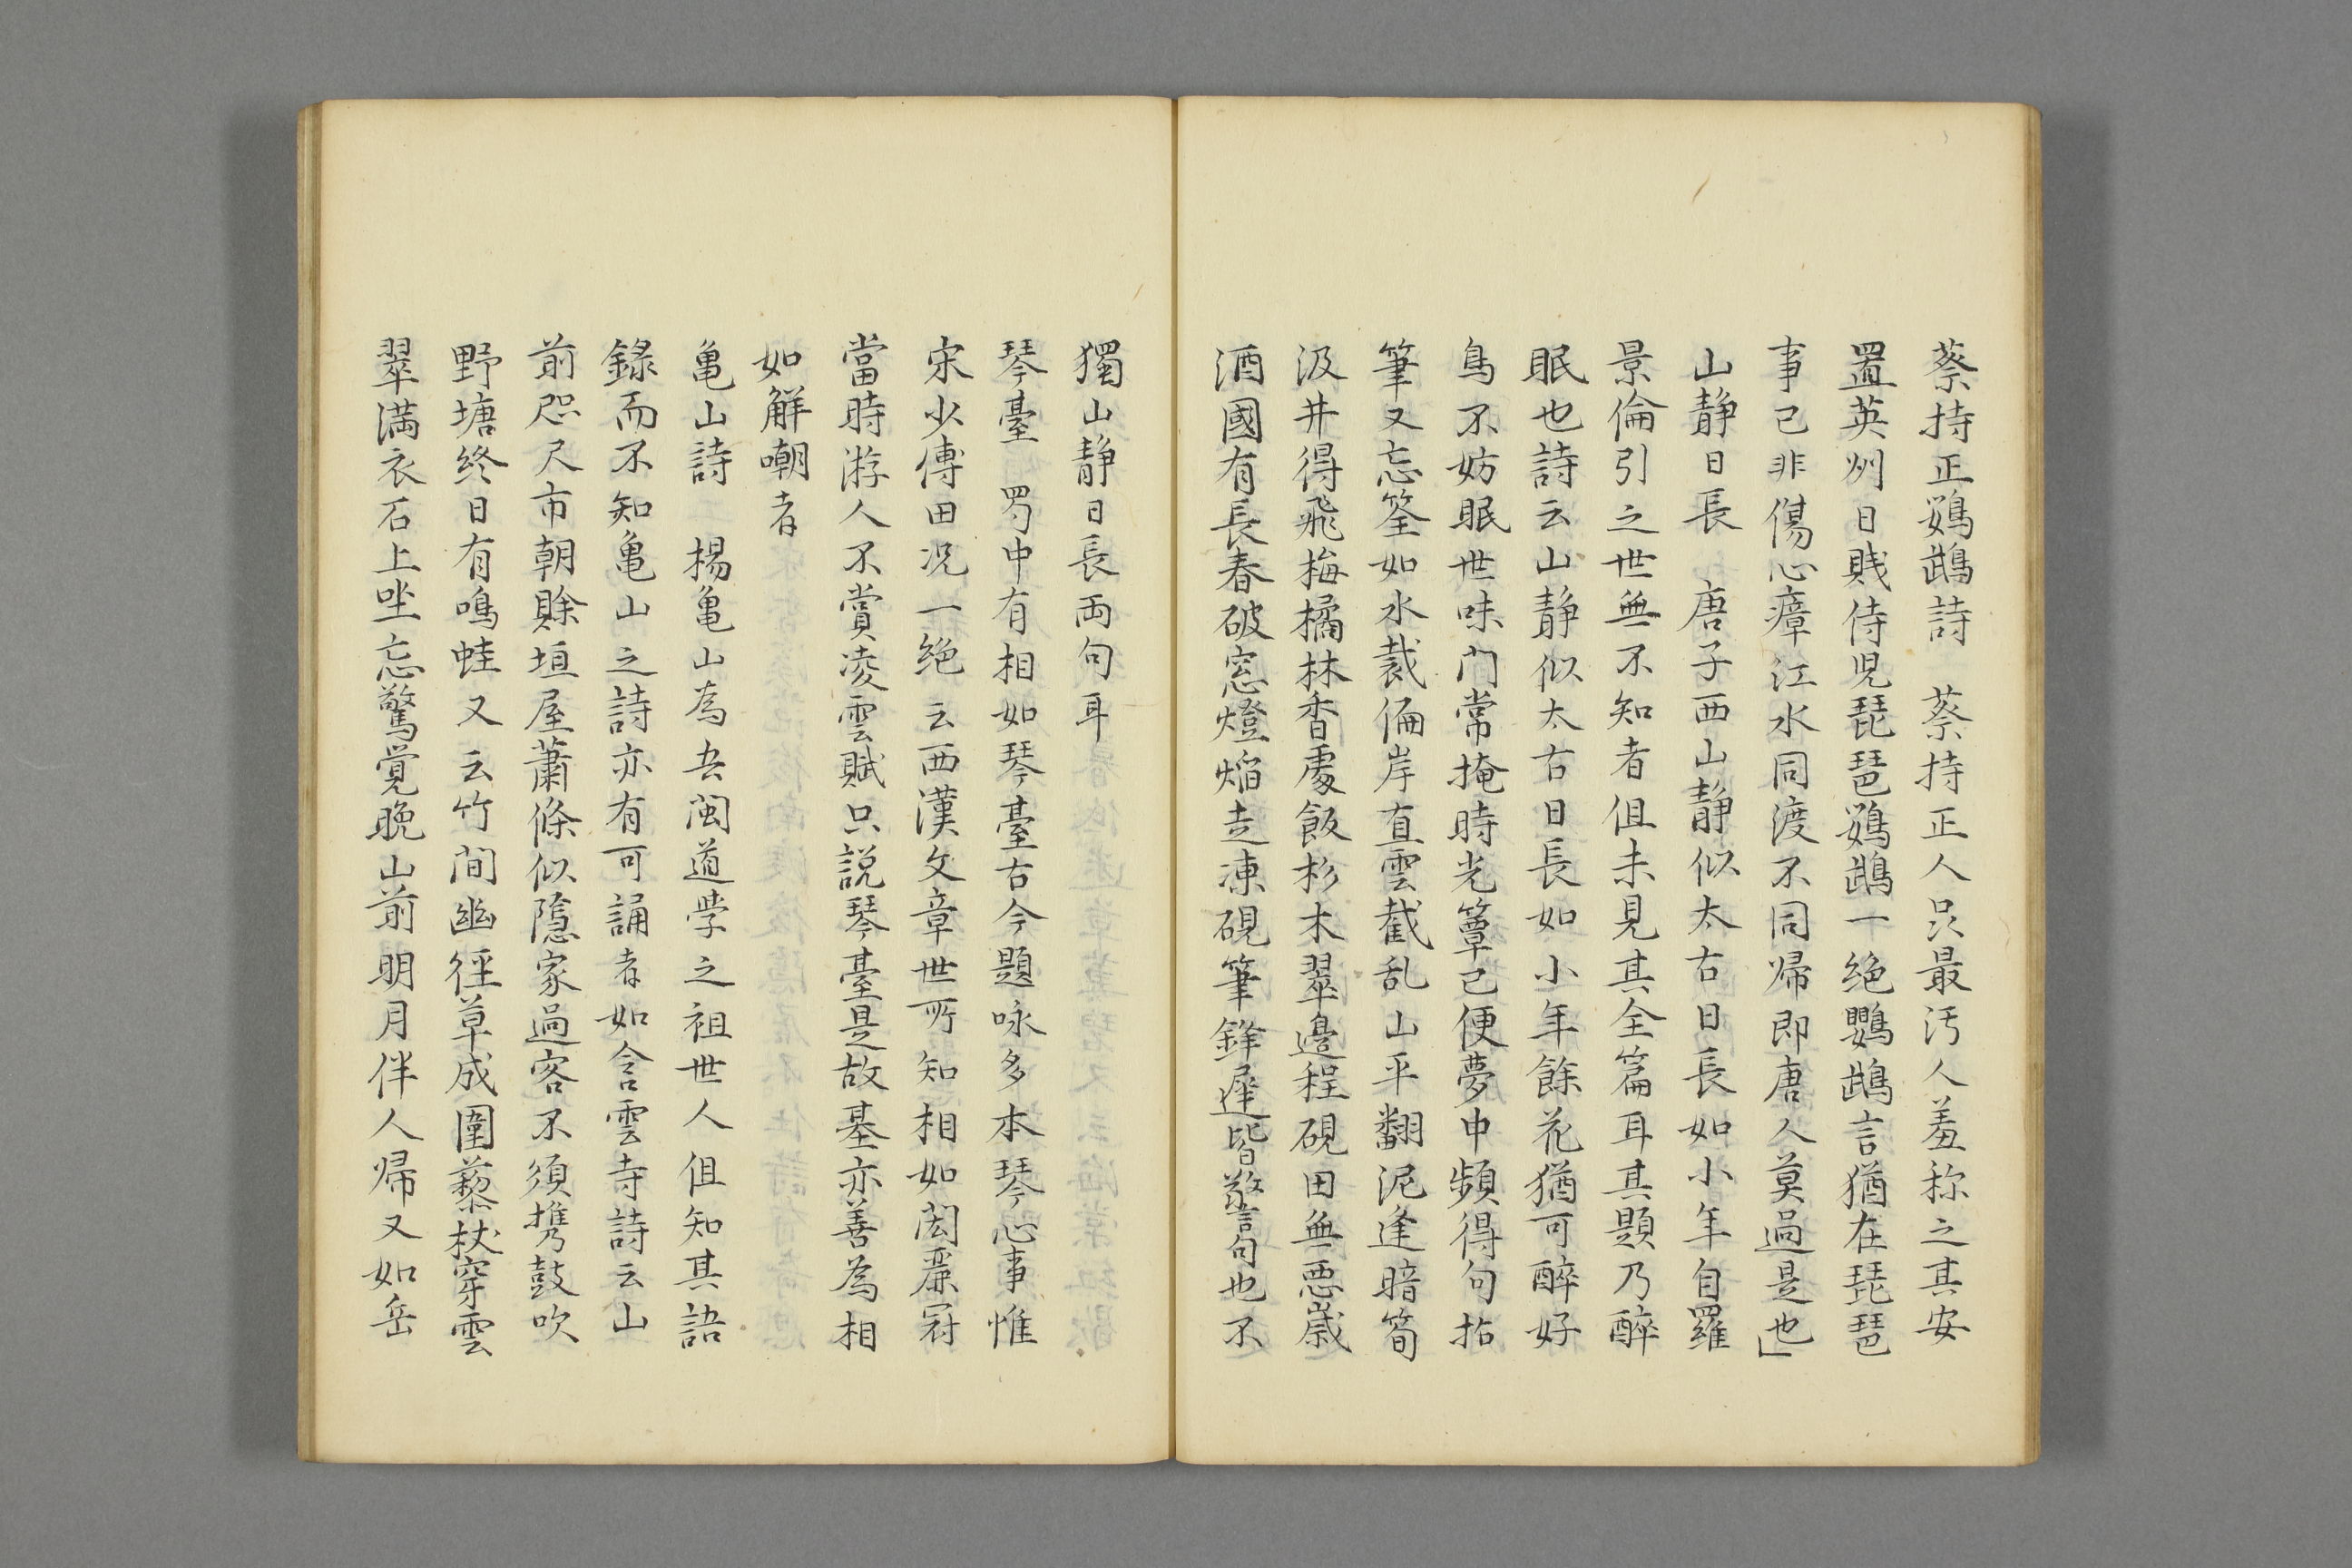 蔡持正鸚鵡詩　蔡持正人品最汚人羞称之其安
置英州日賎侍児琵琶鸚鵡一絶鸚鵡言猶在琵琶
事已非傷心瘴江水同渡不同帰即唐人莫過是也」
山静日長　唐子西山静似太古日長如小年自羅
景倫引之世無不知者但未見其全篇耳其題乃醉
眠也詩云山静似太古日長如小年餘花猶可醉好
鳥不妨眠世味門常掩時光簟已便夢中頻得句拈
筆又忘筌如水裁偏岸直雲截乱山平翻泥逢暗筍
汲井得飛梅橘林香處飯杉木翠邉程硯田無悪嵗
酒國有長春破窓燈焔走凍硯筆鋒遅皆警句也不
獨山静日長両句耳
琴臺　蜀中有相如琴臺古今題咏多本琴心事惟
宋少傅田况一絶云西漢文章世所知相如閎麗冠
當時游人不賞凌雲賦只説琴臺是故基亦善為相
如解嘲者
亀山詩　楊亀山為吾閩道学之祖世人但知其語
録而不知亀山之詩亦有可誦者如含雲寺詩云山
前咫尺市朝賖垣屋蕭條似隠家過客不須携鼓吹
野塘終日有鳴蛙又云竹間幽徑草成圍藜杖穿雲
翠満衣石上坐忘驚覚晩山前明月伴人帰又如岳